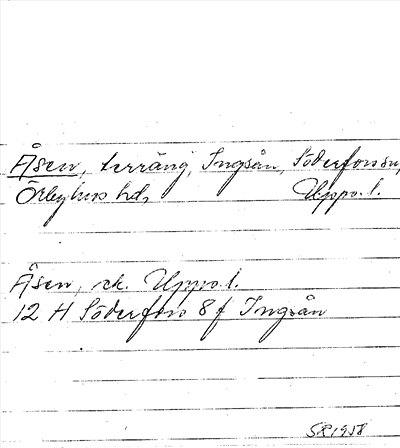 Åsen, terräng, Ingsån, Söderfors sn,
Örbyhus hd, Upps. l.
Åsen, ek. Upps. l.
12 H Söderfors 8 f Ingsån